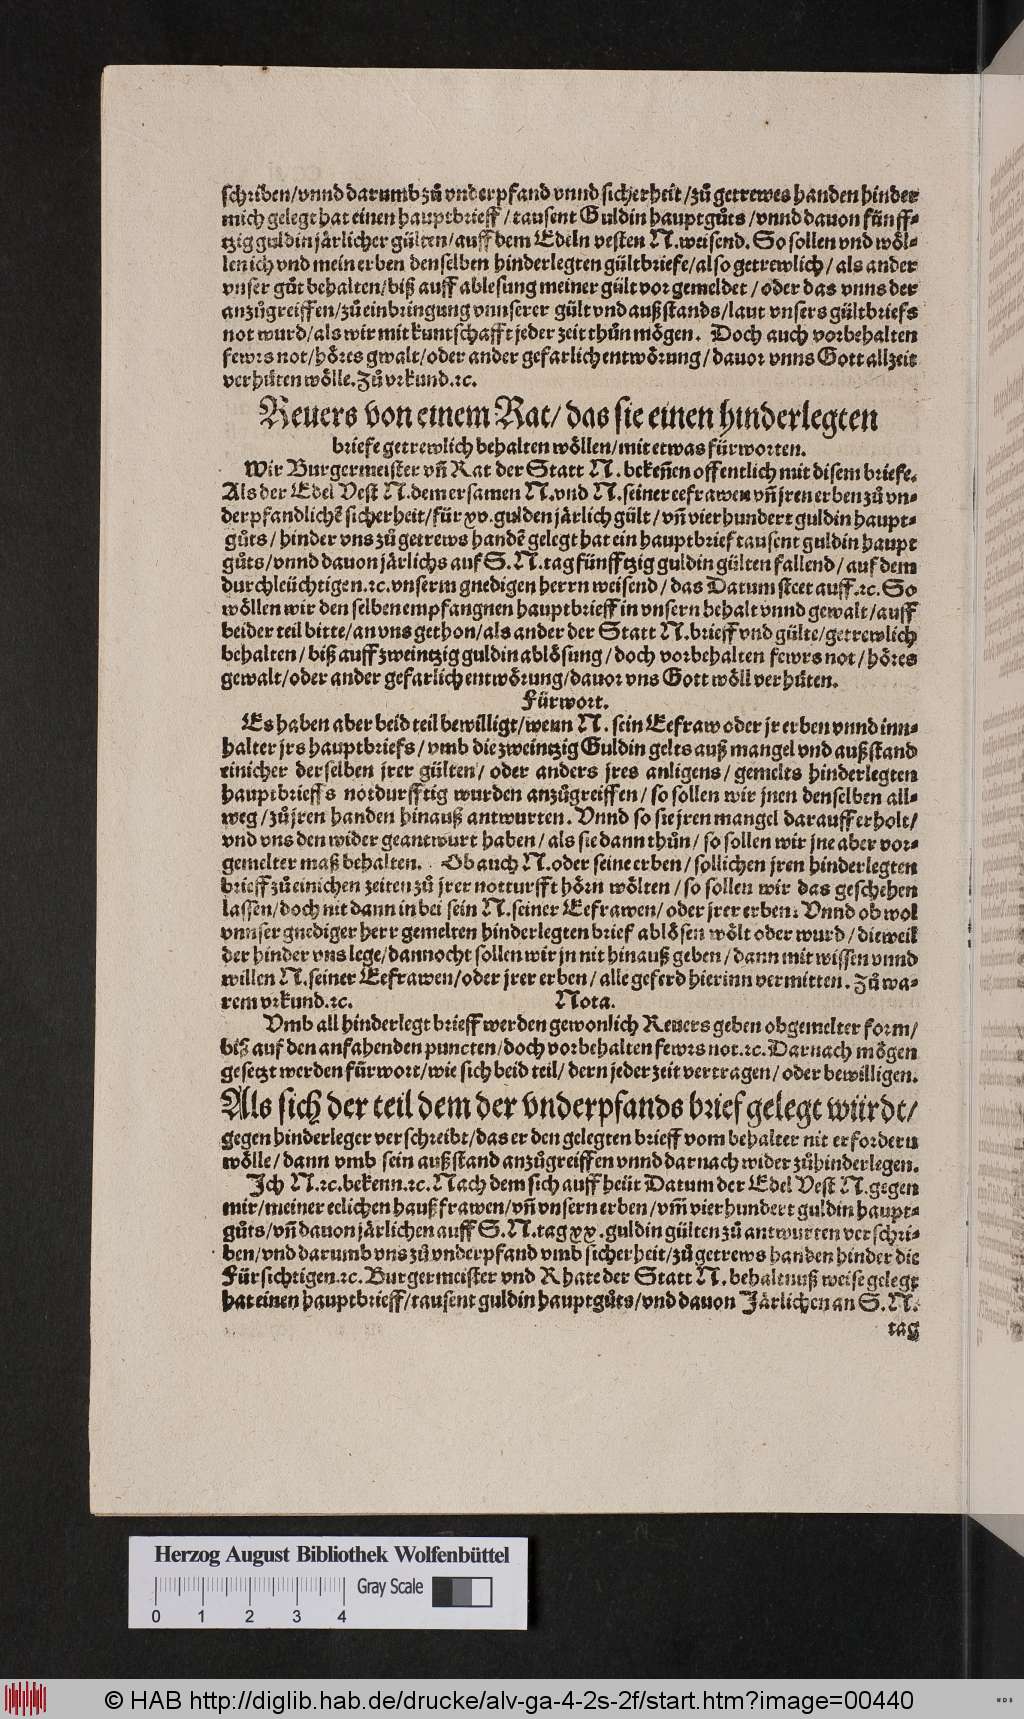 schriben/vnnd darumb zů vnderpfand vnnd sicherheit/zů getrewes handen hinder
mich gelegt hat einen hauptbrieff/tausent Guldin hauptgůts/vnnd dauon fünff-
tzig guldin järlicher gülten/auff dem Edeln vesten N.weisend. So sollen vnd wöl-
len ich vnd mein erben denselben hinderlegten gültbriefe/also getrewlich/als ander
vnser gůt behalten/biß auff ablesung meiner gült vor gemeldet/oder das vnns der
anzůgreiffen/zů einbringung vnnserer gült vnd außstands/laut vnsers gültbriefs
not wurd/als wir mit kuntschafft jeder zeit thůn mögen. Doch auch vorbehalten
fewrs not/höres gwalt/oder ander gefarlich entwörung/dauor vnns Gott allzeit
verhüten wölle. Zů vrkund.ꝛc.
Reuers von einem Rat/das sie einen hinderlegten
briefe getrewlich behalten wöllen/mit etwas fürworten.
Wir Burgermeister vñ Rat der Statt N. bekeñen offentlich mit disem briefe.
Als der Edel Vest N.dem ersamen N.vnd N.seiner eefrawen vñ jren erben zů vn-
derpfandlichẽ sicherheit/für xv.gulden järlich gült/vñ vierhundert guldin haupt-
gůts/hinder vns zů getrews handẽ gelegt hat ein hauptbrief tausent guldin haupt
gůts/vnnd dauon järlichs auf S.N.tag fünfftzig guldin gülten fallend/auf dem
durchleüchtigen.ꝛc.vnserm gnedigen herrn weisend/das Datum steet auff.ꝛc. So
wöllen wir den selben empfangnen hauptbrieff in vnsern behalt vnnd gewalt/auff
beider teil bitte/an vns gethon/als ander der Statt N.brieff vnd gülte/getrewlich
behalten/biß auff zweintzig guldin ablösung/doch vorbehalten fewrs not/höres
gewalt/oder ander gefarlich entwörung/dauor vns Gott wöll verhüten.
Fürwort.
Es haben aber beid teil bewilligt/wenn N. sein Eefraw oder jr erben vnnd inn-
halter jrs hauptbriefs/vmb die zweintzig Guldin gelts auß mangel vnd außstand
einicher derselben jrer gülten/oder anders jres anligens/gemelts hinderlegten
hauptbrieffs notdurfftig wurden anzůgreiffen/so sollen wir jnen denselben all-
weg/zů jren handen hinauß antwurten. Vnnd so sie jren mangel darauff erholt/
vnd vns den wider geantwurt haben/als sie dann thůn/so sollen wir jne aber vor-
gemelter maß behalten. Ob auch N.oder seine erben/sollichen jren hinderlegten
brieff zů einichen zeiten zů jrer notturfft hörn wölten/so sollen wir das geschehen
lassen/doch nit dann in bei sein N.seiner Eefrawen/oder jrer erben: Vnnd ob wol
vnnser gnediger herr gemelten hinderlegten brief ablösen wölt oder wurd/dieweil
der hinder vns lege/dannocht sollen wir jn nit hinauß geben/dann mit wissen vnnd
willen N.seiner Eefrawen/oder jrer erben/alle geferd hierinn vermitten. Zů wa-
rem vrkund.ꝛc. Nota.
Vmb all hinderlegt brieff werden gewonlich Reuers geben obgemelter form/
biß auf den anfahenden puncten/doch vorbehalten fewrs not.ꝛc.Darnach mögen
gesetzt werden fürwort/wie sich beid teil/dern jeder zeit vertragen/oder bewilligen.
Als sich der teil dem der vnderpfands brief gelegt würdt/
gegen hinderleger verschreibt/das er den gelegten brieff vom behalter nit erfordern
wölle/dann vmb sein außstand anzůgreiffen vnnd darnach wider zůhinderlegen.
Ich N.ꝛc.bekenn.ꝛc.Nach dem sich auff heüt Datum der Edel Vest N.gegen
mir/meiner eelichen haußfrawen/vñ vnsern erben/vm̃ vierhundert guldin haupt-
gůts/vñ dauon järlichen auff S.N.tag xx.guldin gülten zů antwurten verschri-
ben/vnd darumb vns zů vnderpfand vmb sicherheit/zů getrews handen hinder die
Fürsichtigen.ꝛc.Burgermeister vnd Rhate der Statt N.behaltnuß weise gelegt
hat einen hauptbrieff/tausent guldin hauptgůts/vnd dauon Järlichen an S.N.
tag
Herzog August Bibliothek Wolfenbüttel
Gray Scale
0 1 2 3 4
© HAB http://diglib.hab.de/drucke/alv-ga-4-2s-2f/start.htm?image=00440